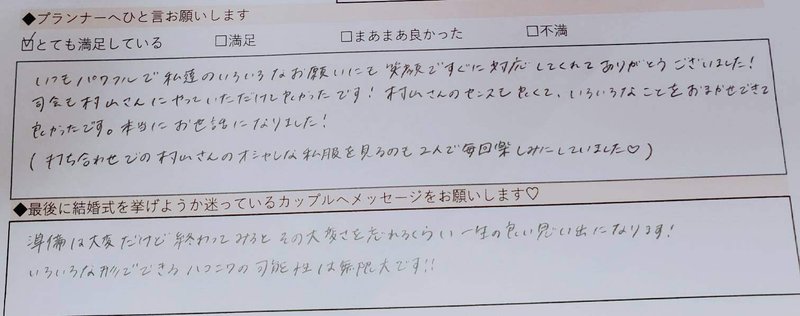 ◆プランナーへひと言お願いします
☑とても満足している □満足 □まあまあ良かった □不満
いつもパワフルで私達のいろいろなお願いにも笑顔ですぐに対応してくれてありがとうございました！
司会も村山さんにやっていただけて良かったです！村山さんのセンスも良くて、いろいろなことをおまかせできて
良かったです。本当にお世話になりました！
(打ち合わせでの村山さんのオシャレな私服を見るのも2人で毎回楽しみにしていました♡)
◆最後に結婚式を挙げようか迷っているカップルへメッセージをお願いします♡
準備は大変だけど終わってみるとその大変さを忘れるくらい一生の良い思い出になります！
いろいろな形でできるハコニワの可能性は無限大です!!